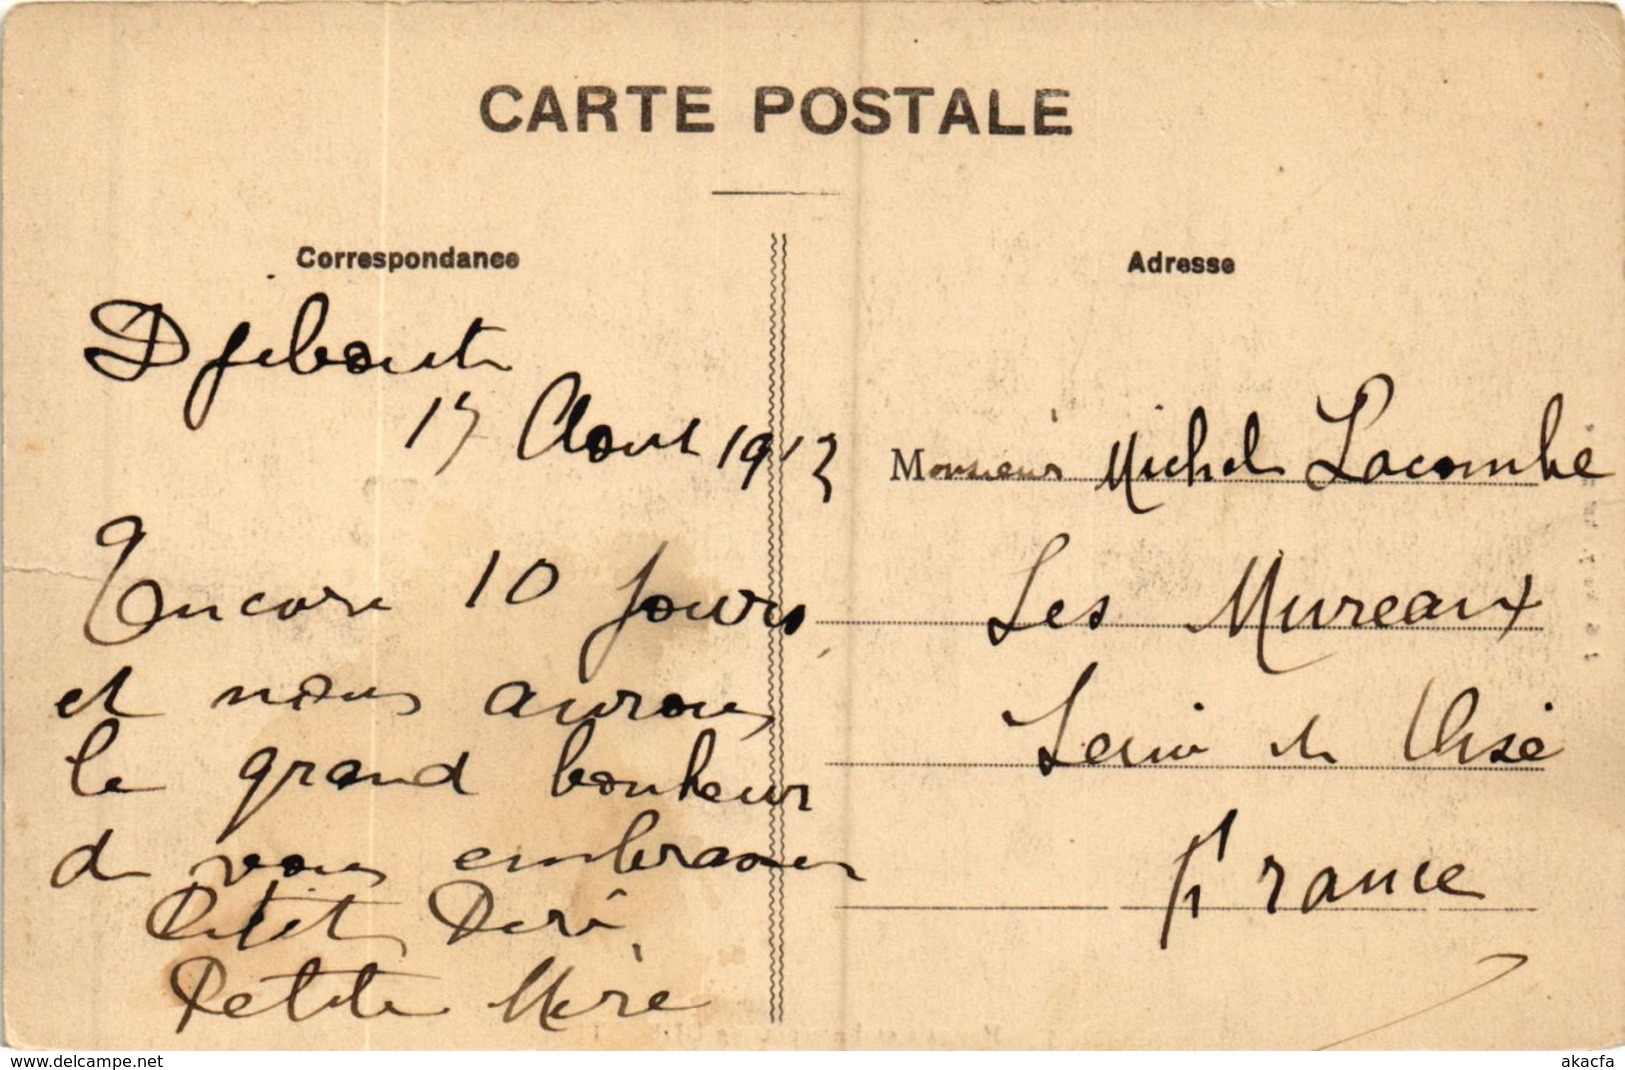 CARTE POSTALE
Correspondance
Djibouti
17 Aout 1913
Encore 10 jours
et nous aurons
le grand bonheur
de vous embrasser
Petit Père
Petite Mère
Adresse
Monsieur Michel Lacombe
Les Mureaux
Seine et Oise
France
www.delcampe.net
akacfa